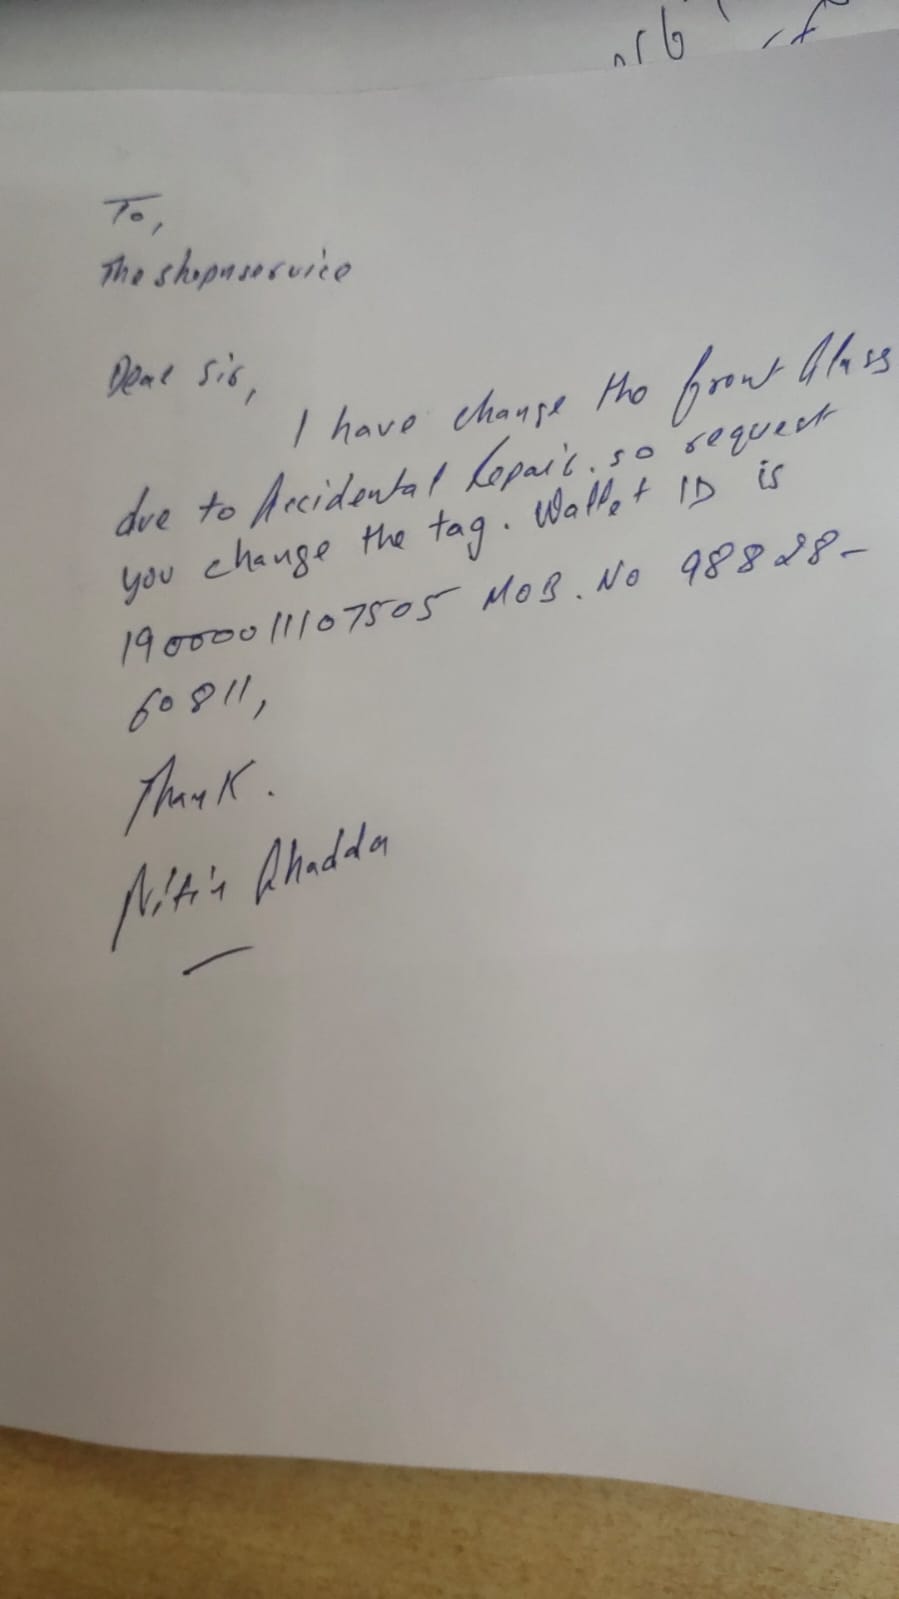 To,
The shopnservice
Dear Sir,
I have change the front Glass
due to Accidental Repair. so request
you change the tag. Wallet ID is
190000011107505 MOB. No 98828-
60811,
Thank.
Nitin Chadda